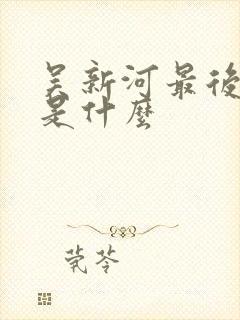 吴新河最後
是什麼
莞苓